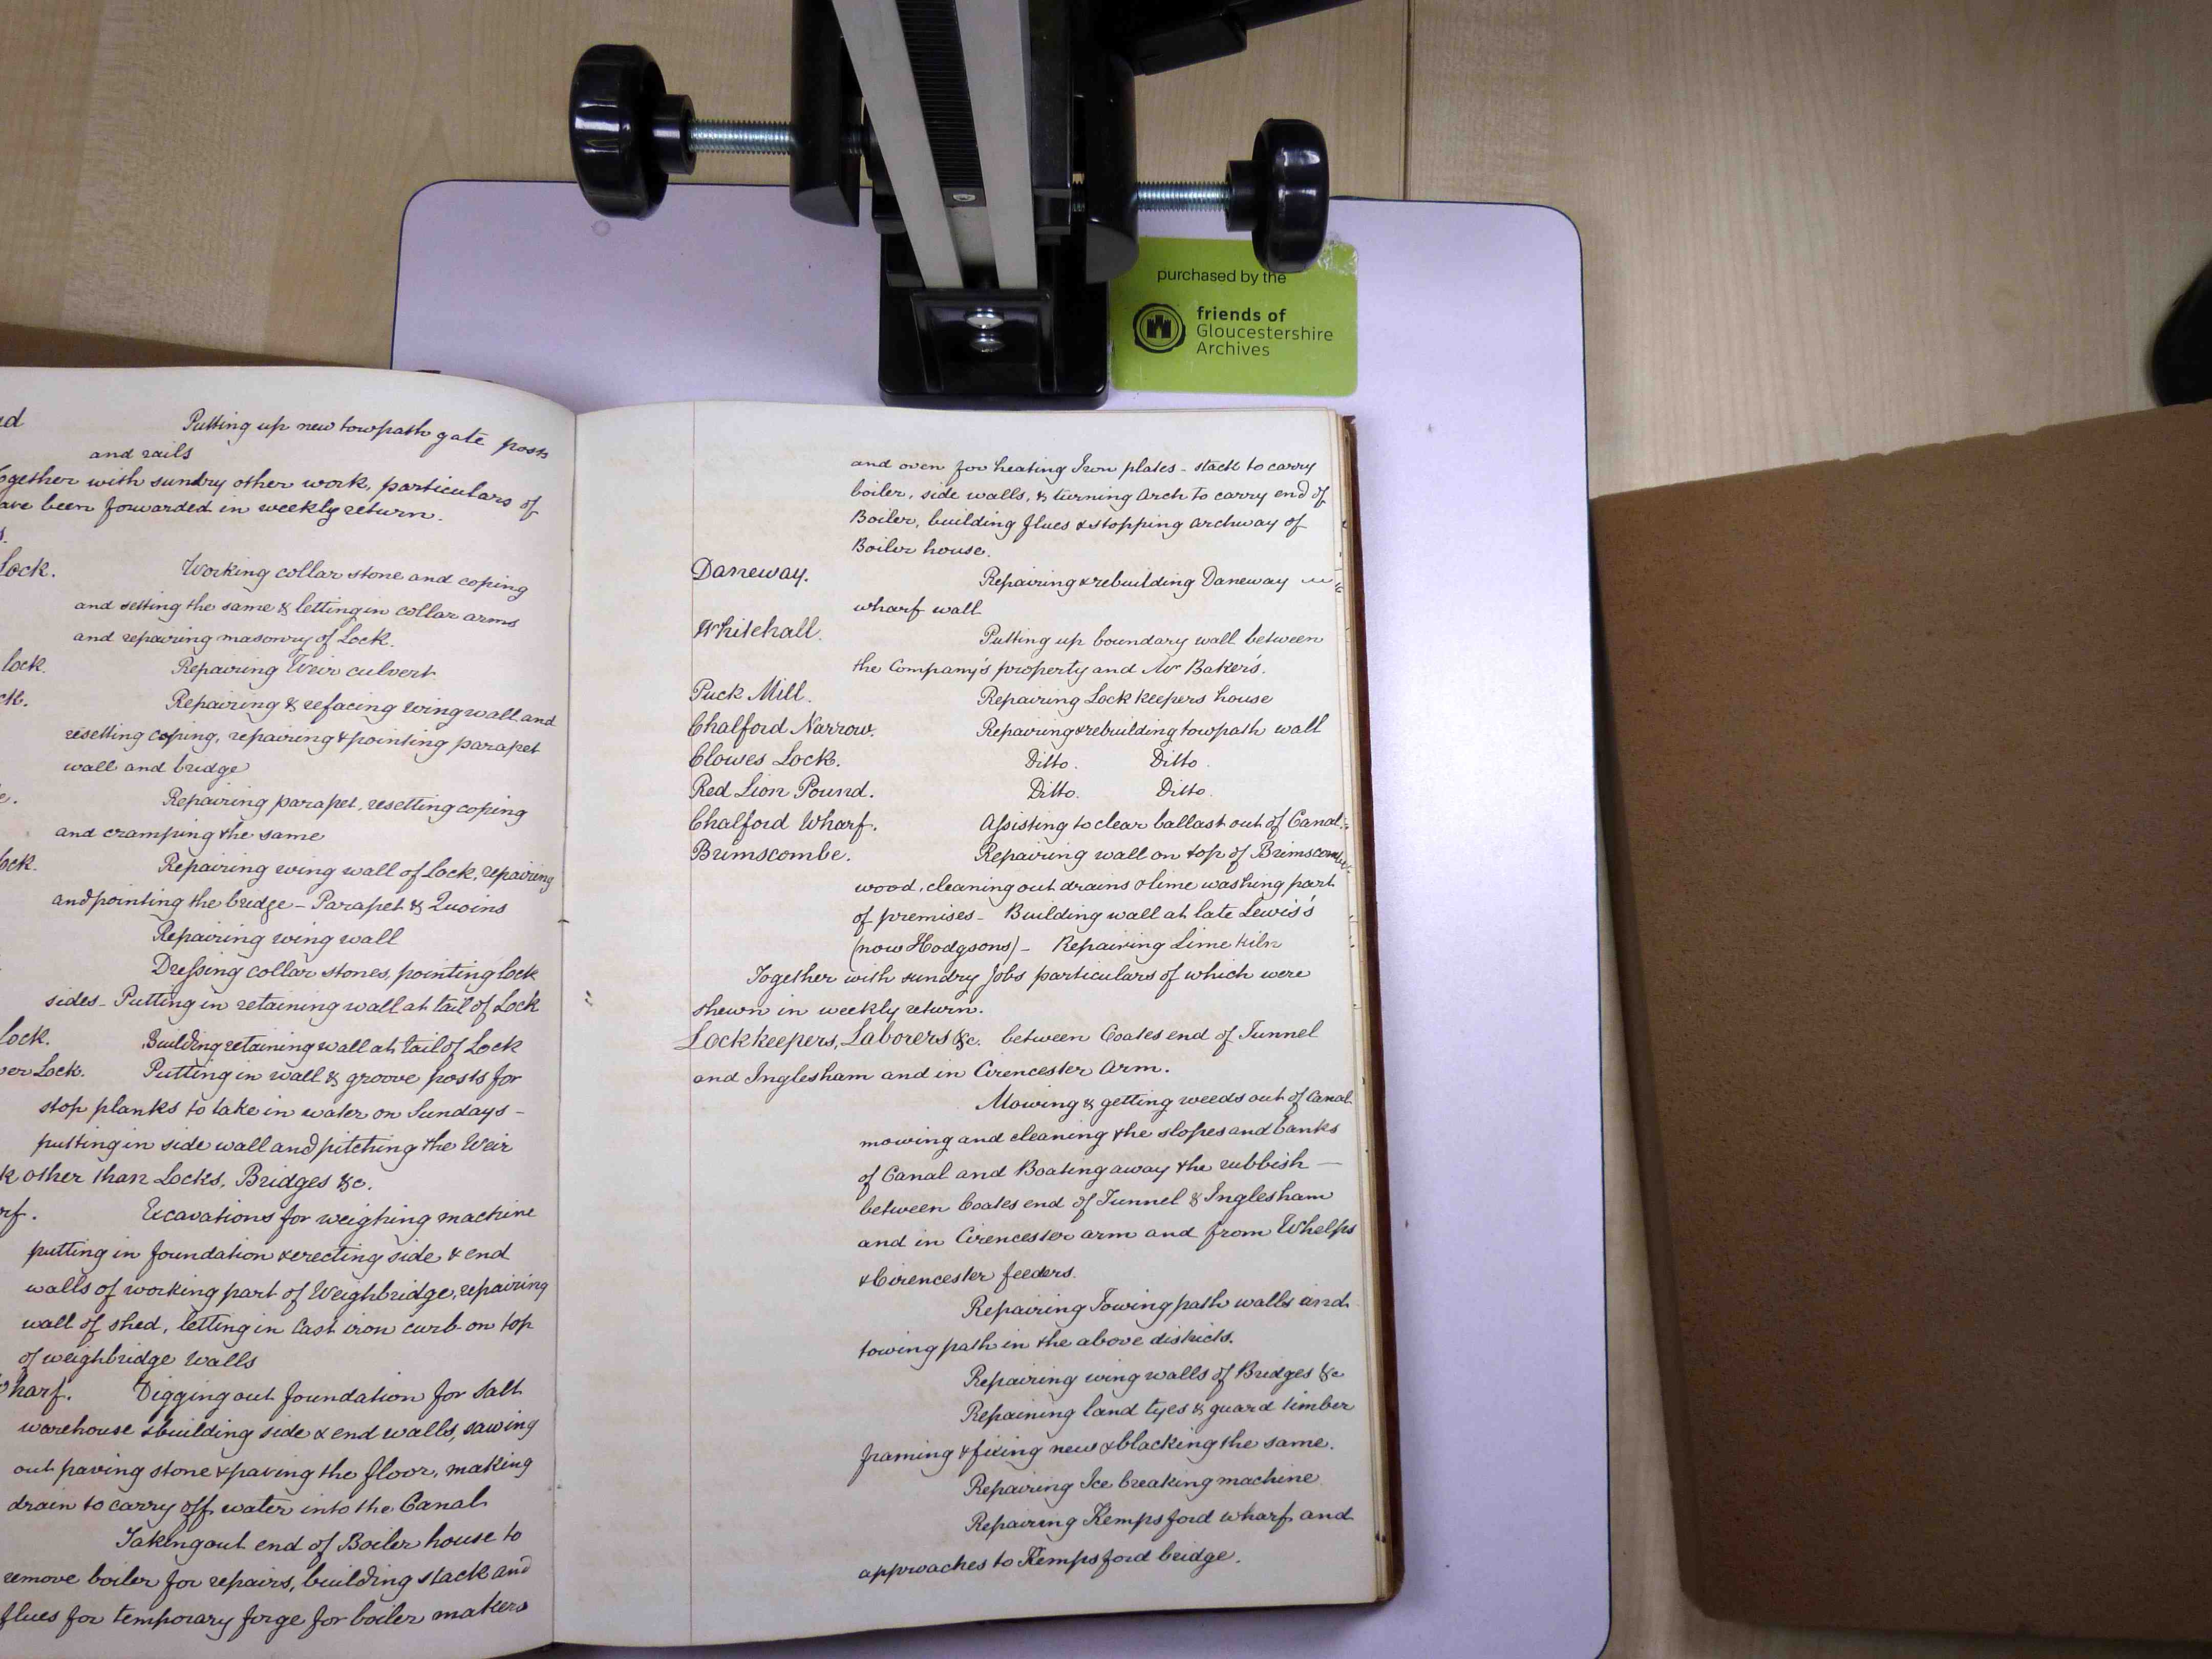 purchased by the
friends of
Gloucestershire
Archives
Putting up new towpath gate posts
and rails
together with sundry other work, particulars of
have been forwarded in weekly return.
Lock. Working collar stone and coping
and setting the same & letting in collar arms
and repairing masonry of Lock.
lock. Repairing Weir culvert
Repairing & refacing wing wall and
resetting coping, repairing & pointing parapet
wall and bridge
Repairing parapet, resetting coping
and cramping the same
Repairing wing wall of Lock, repairing
and pointing the bridge - Parapet & Quoins
Repairing wing wall
Dressing collar stones, pointing lock
sides - Putting in retaining wall at tail of Lock
lock. Building retaining wall at tail of Lock
Lock. Putting in wall & groove posts for
stop planks to take in water on Sundays -
putting in side wall and pitching the Weir
other than Locks, Bridges &c.
Excavations for weighing machine
putting in foundation & erecting side & end
walls of working part of Weighbridge, repairing
wall of shed, letting in Cast iron curb on top
of weighbridge walls
Wharf. Digging out foundation for Salt
warehouse & building side & end walls, sawing
out paving stone & paving the floor, making
drain to carry off water into the Canal
Taking out end of Boiler house to
remove boiler for repairs, building stack and
flues for temporary forge for boiler makers
and oven for heating Iron plates - stack to carry
boiler, side walls, & turning Arch to carry end of
Boiler, building flues & stopping archway of
Boiler house.
Daneway. Repairing & rebuilding Daneway
wharf wall
Whitehall. Putting up boundary wall between
the Company's property and Mr Baker's.
Puck Mill. Repairing Lock keepers house
Chalford Narrow. Repairing & rebuilding towpath wall
Clowes Lock. Ditto. Ditto.
Red Lion Pound. Ditto. Ditto.
Chalford Wharf. Assisting to clear ballast out of Canal.
Brimscombe. Repairing wall on top of Brimscombe
wood, cleaning out drains & lime washing part
of premises - Building wall at late Lewis's
(now Hodgsons) - Repairing Lime kiln
Together with sundry Jobs particulars of which were
shewn in weekly return.
Lockkeepers, Laborers &c. between Coates end of Tunnel
and Inglesham and in Cirencester Arm.
Mowing & getting weeds out of Canal
mowing and cleaning the slopes and banks
of Canal and Boating away the rubbish —
between Coates end of Tunnel & Inglesham
and in Cirencester arm and from Whelps
& Cirencester feeders.
Repairing Towing path walls and
towing path in the above districts.
Repairing wing walls of Bridges &c
Repairing land tyes & guard timber
framing & fixing new & blacking the same.
Repairing Ice breaking machine
Repairing Kempsford wharf and
approaches to Kempsford bridge.